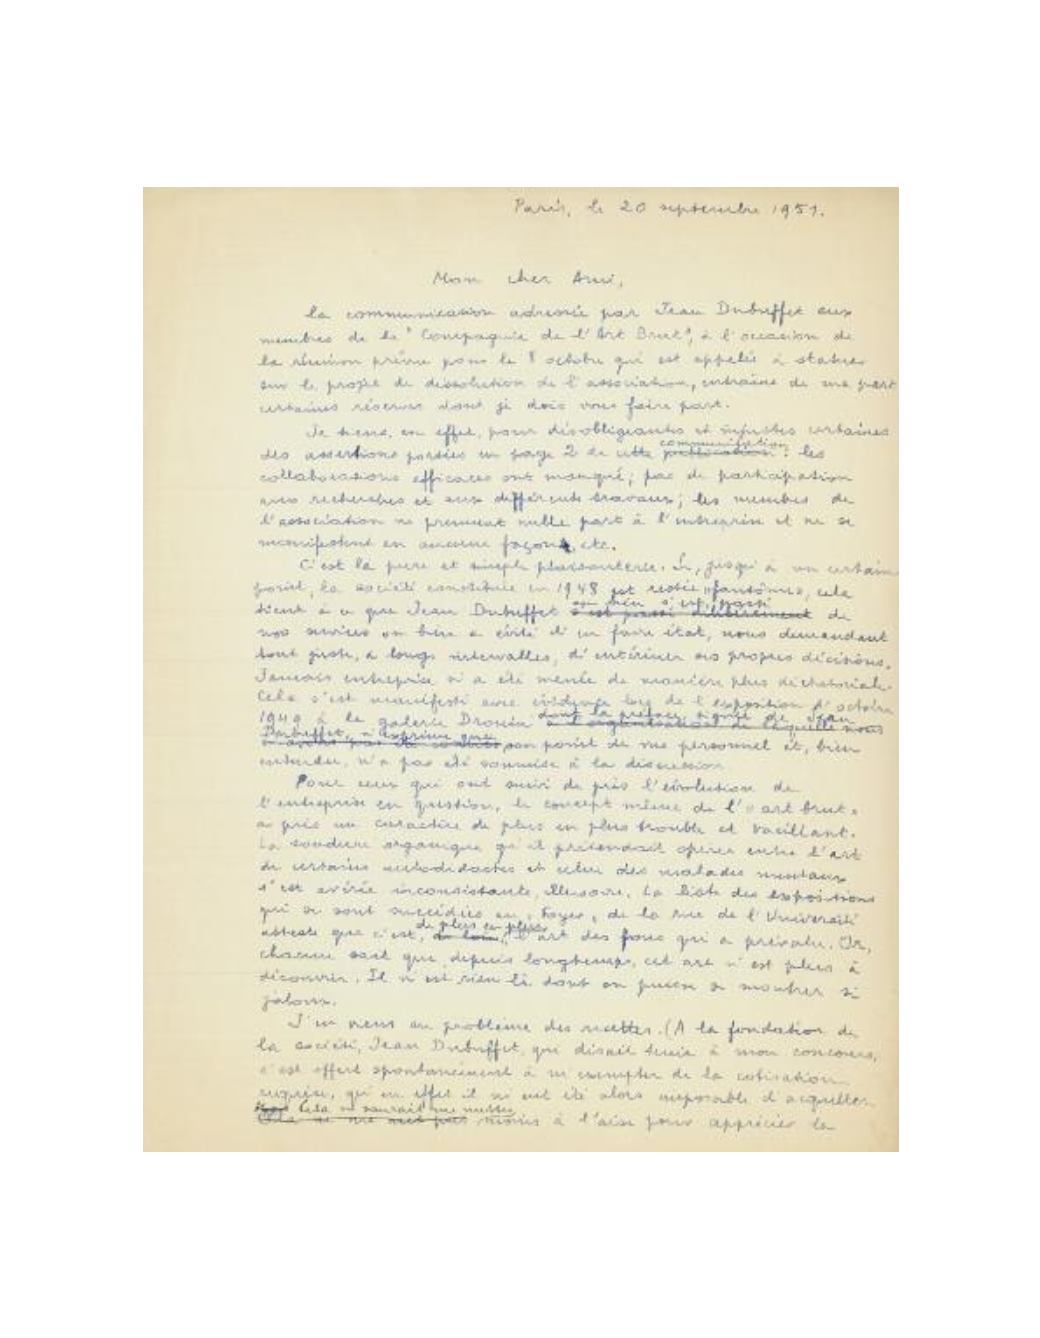 Paris, le 20 septembre 1951.
Mon cher Ami,
la communication adressée par Jean Dubuffet aux
membres de la "Compagnie de l'Art Brut", à l'occasion de
la réunion prévue pour le 8 octobre qui est appelée à statuer
sur le projet de dissolution de l'association, entraîne de ma part
certaines réserves dont je dois vous faire part.
Je tiens, en effet, pour désobligeantes et injustes certaines
communication
des assertions portées en page 2 de cette publication : les
collaborations efficaces ont manqué ; pas de participation
aux recherches et aux différents travaux ; les membres de
l'association ne prennent nulle part à l'entreprise et ne se
manifestent en aucune façon, etc.
C'est là pure et simple plaisanterie. Si, jusqu'à un certain
point, la société constituée en 1948 est restée "fantôme", cela
ou bien s'est passé
tient à ce que Jean Dubuffet s'est passé délibérément de
nos services ou bien a évité d'en faire état, nous demandant
tout juste, à longs intervalles, d'entériner ses propres décisions.
Jamais entreprise n'a été menée de manière plus dictatoriale.
Cela s'est manifesté avec évidence lors de l'exposition d'octobre
dont la préface, signée de Jean
1949 à la galerie Drouin à l'organisation de laquelle nous
Dubuffet, n'exprime que
n'avons pas été conviés son point de vue personnel et, bien
entendu, n'a pas été soumise à la discussion.
Pour ceux qui ont suivi de près l'évolution de
l'entreprise en question, le concept même de l'"art brut"
a pris un caractère de plus en plus trouble et vacillant.
La soudure organique qu'il prétendait opérer entre l'art
de certains autodidactes et celui des malades mentaux
s'est avérée inconsistante, illusoire. La liste des expositions
qui se sont succédées au "Foyer" de la rue de l'Université
de plus en plus
atteste que c'est, de loin, l'art des fous qui a prévalu. Or,
chacun sait que, depuis longtemps, cet art n'est plus à
découvrir. Il n'est rien là dont on puisse se montrer si
jaloux.
J'en viens au problème des recettes. (A la fondation de
la société, Jean Dubuffet, qui disait tenir à mon concours,
s'est offert spontanément à m'exempter de la cotisation
requise, qu'en effet il m'eut été alors impossible d'acquitter.
Cela ne saurait me mettre
Cela ne me met pas moins à l'aise pour apprécier la